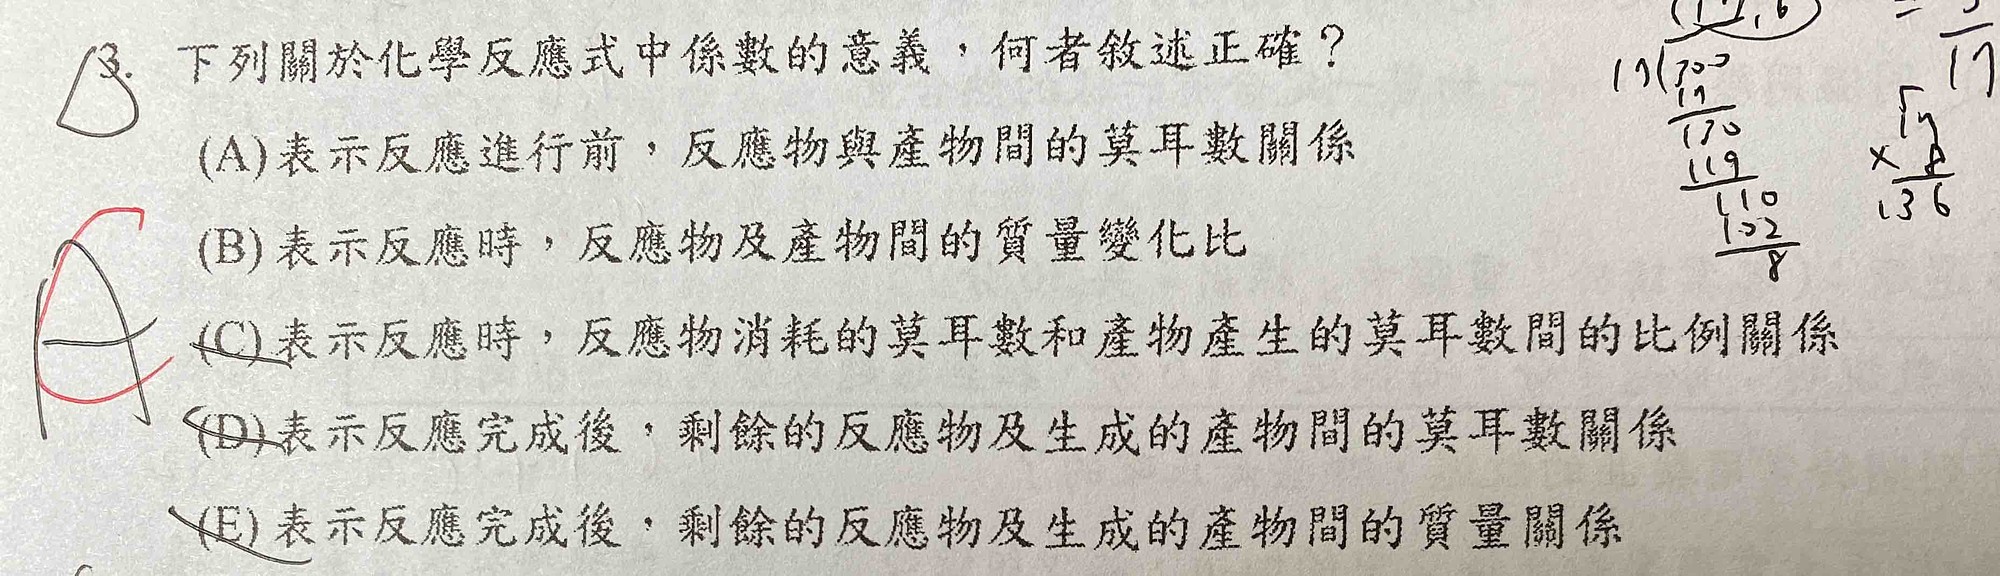 3. 下列關於化學反應式中係數的意義，何者敘述正確？
(A)表示反應進行前，反應物與產物間的莫耳數關係
(B)表示反應時，反應物及產物間的質量變化比
(C)表示反應時，反應物消耗的莫耳數和產物產生的莫耳數間的比例關係
(D)表示反應完成後，剩餘的反應物及生成的產物間的莫耳數關係
(E)表示反應完成後，剩餘的反應物及生成的產物間的質量關係
A
C
17
300
17
130
119
110
102
8
17
× 8
136